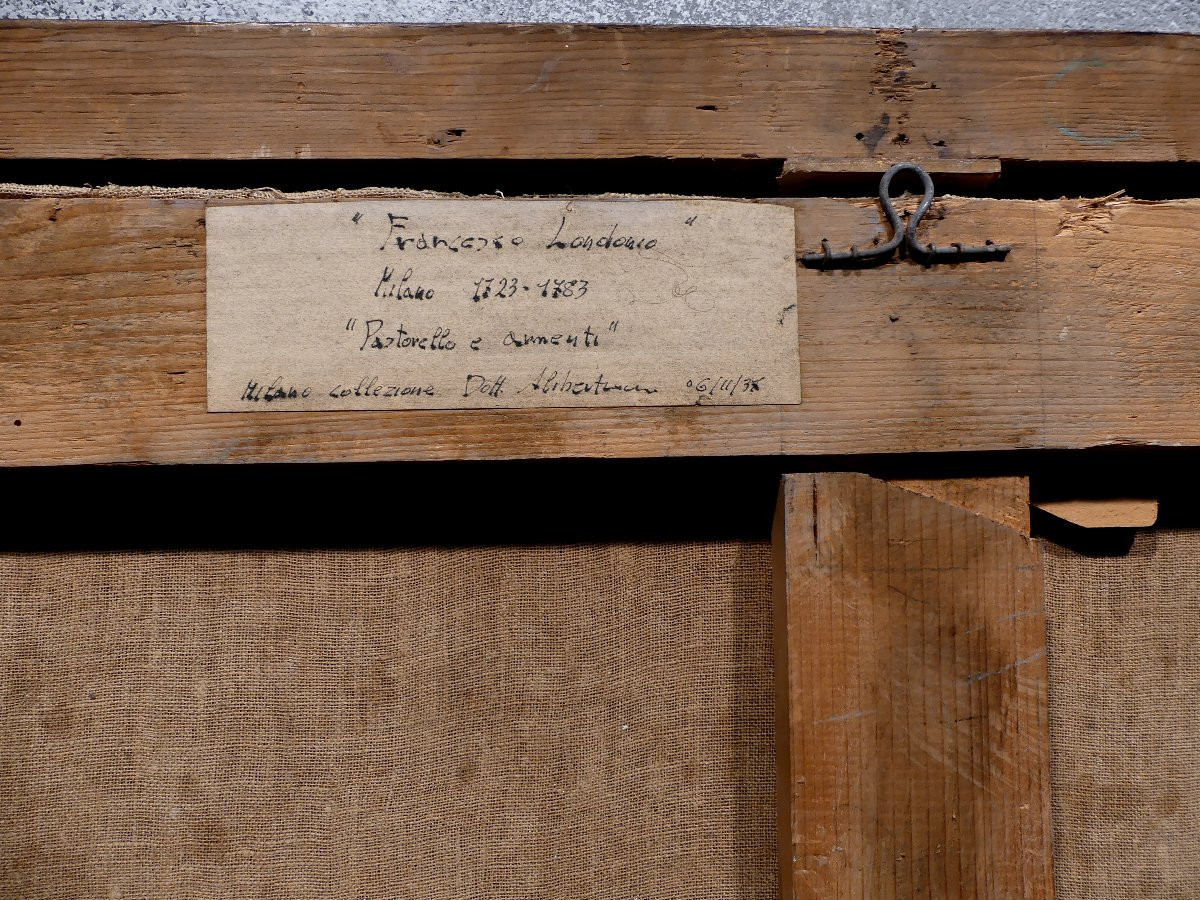 "Francesco Londonio"
Milano 1723-1783
"Pastorello e armenti"
Milano collezione Dott.